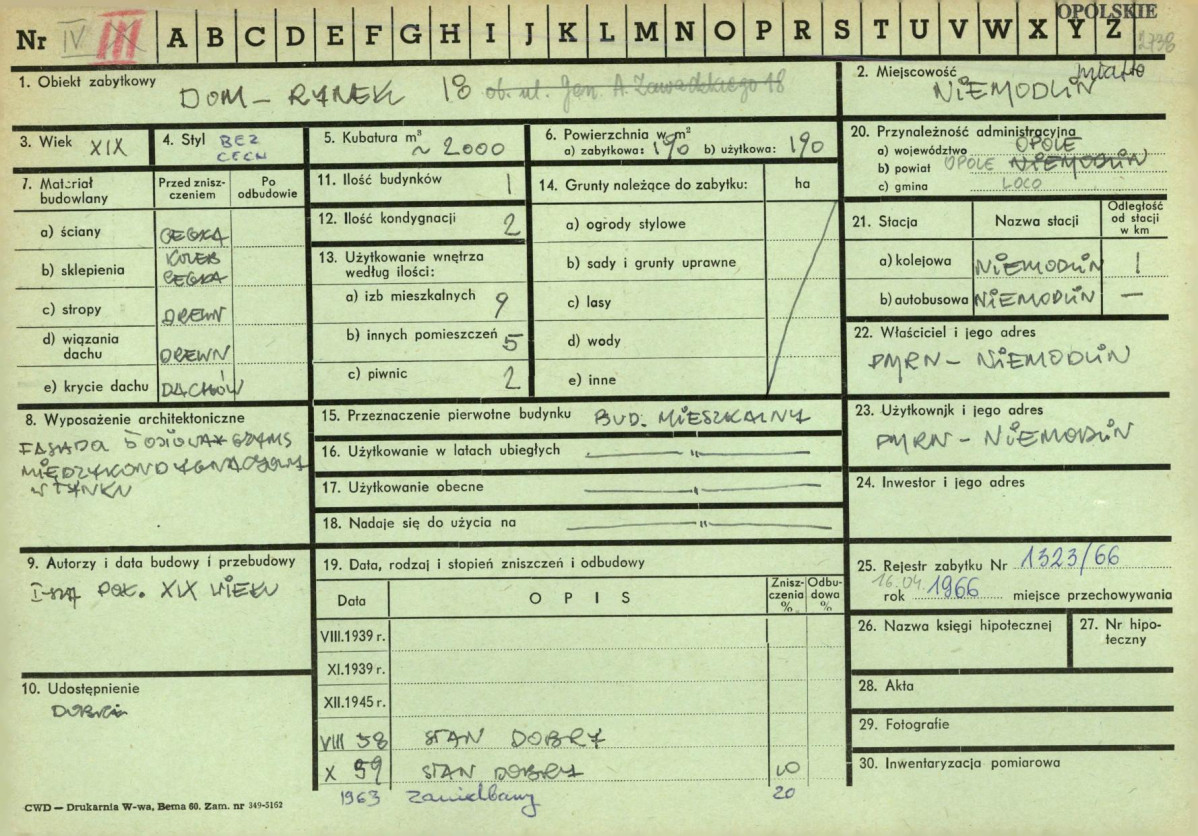 OPOLSKIE
Nr IV III A B C D E F G H I J K L M N O P R S T U V W X Y Z
1. Obiekt zabytkowy
DOM – RYNEK 18 ob. ul. Jen. A. Zawadzkiego 18
2. Miejscowość miasto
NIEMODLIN
3. Wiek XIX
4. Styl BEZ
CECH
5. Kubatura m³
~ 2000
6. Powierzchnia w m²
a) zabytkowa: 190 b) użytkowa: 190
20. Przynależność administracyjna
a) województwo OPOLE
b) powiat OPOLE NIEMODLIN
c) gmina LOCO
7. Materiał budowlany
Przed znisz-
czeniem
Po
odbudowie
a) ściany CEGŁA
b) sklepienia KOLEB
CEGŁA
c) stropy DREWN
d) wiązania
dachu DREWN
e) krycie dachu DACHÓW
11. Ilość budynków 1
12. Ilość kondygnacji 2
13. Użytkowanie wnętrza
według ilości:
a) izb mieszkalnych 9
b) innych pomieszczeń 5
c) piwnic 2
14. Grunty należące do zabytku: ha
a) ogrody stylowe
b) sady i grunty uprawne
c) lasy
d) wody
e) inne
21. Stacja
Nazwa stacji
Odległość
od stacji
w km
a) kolejowa NIEMODLIN 1
b) autobusowa NIEMODLIN —
22. Właściciel i jego adres
PMRN – NIEMODLIN
23. Użytkownik i jego adres
PMRN – NIEMODLIN
24. Inwestor i jego adres
8. Wyposażenie architektoniczne
FASADA 5 OSIOWA GZYMS
MIĘDZYKONDYGNACYJNY
W TYNKU
15. Przeznaczenie pierwotne budynku BUD. MIESZKALNY
16. Użytkowanie w latach ubiegłych — " —
17. Użytkowanie obecne — " —
18. Nadaje się do użycia na — " —
9. Autorzy i data budowy i przebudowy
I-SZA POŁ. XIX WIEKU
10. Udostępnienie
19. Data, rodzaj i stopień zniszczeń i odbudowy
Data
O P I S
Znisz-
czenia
%
Odbu-
dowa
%
VIII.1939 r.
XI.1939 r.
XII.1945 r.
VIII 58 STAN DOBRY
X 59 STAN DOBRY
1963 Zaniedbany 20
25. Rejestr zabytku Nr 1323/66
16.04
rok 1966 miejsce przechowywania
26. Nazwa księgi hipotecznej
27. Nr hipo-
teczny
28. Akta
29. Fotografie
30. Inwentaryzacja pomiarowa
CWD — Drukarnia W-wa, Bema 60. Zam. nr 349-5162